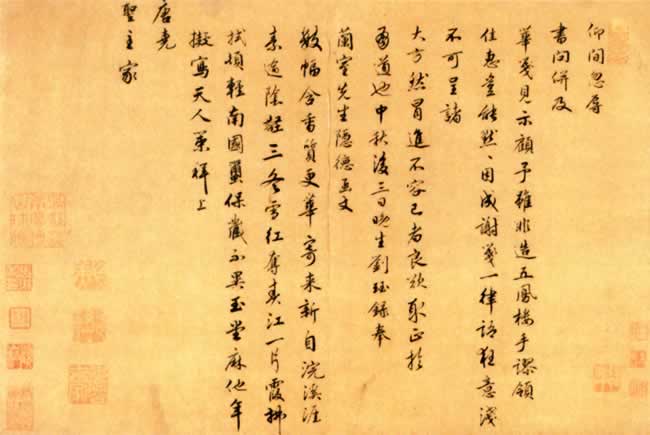 仰間忽辱
書問併及
華箋見示顧予雖非造五鳳樓手謬領
佳惠豈能默默因成謝箋一律語意淺
不可呈諸
大方然冒進不容已者良欲取正於
有道也中秋後三日晚生劉珏錄奉
蘭室先生隱德文
數幅含香質更華寄來新自浣溪涯
素逾陰壑三冬雪紅奪春江一片霞拂
拭頓輕南國繭保藏不異玉堂麻他年
擬寫天人策拜上
唐堯
聖主家